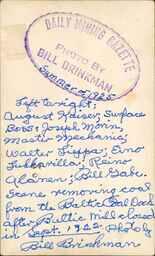 DAILY MINING GAZETTE
PHOTO BY
BILL BRINKMAN
Summer of 1925
Left to right;
August Kaiser, Surface
Boss; Joseph Morin,
Master Mechanic;
Walter Lippa; Eino
Reino
Bill Gabe.
Scene removing coal
from the Baltic Coal Dock
after Baltic Mill closed
in Sept. 1922. Photo by
Bill Brinkman